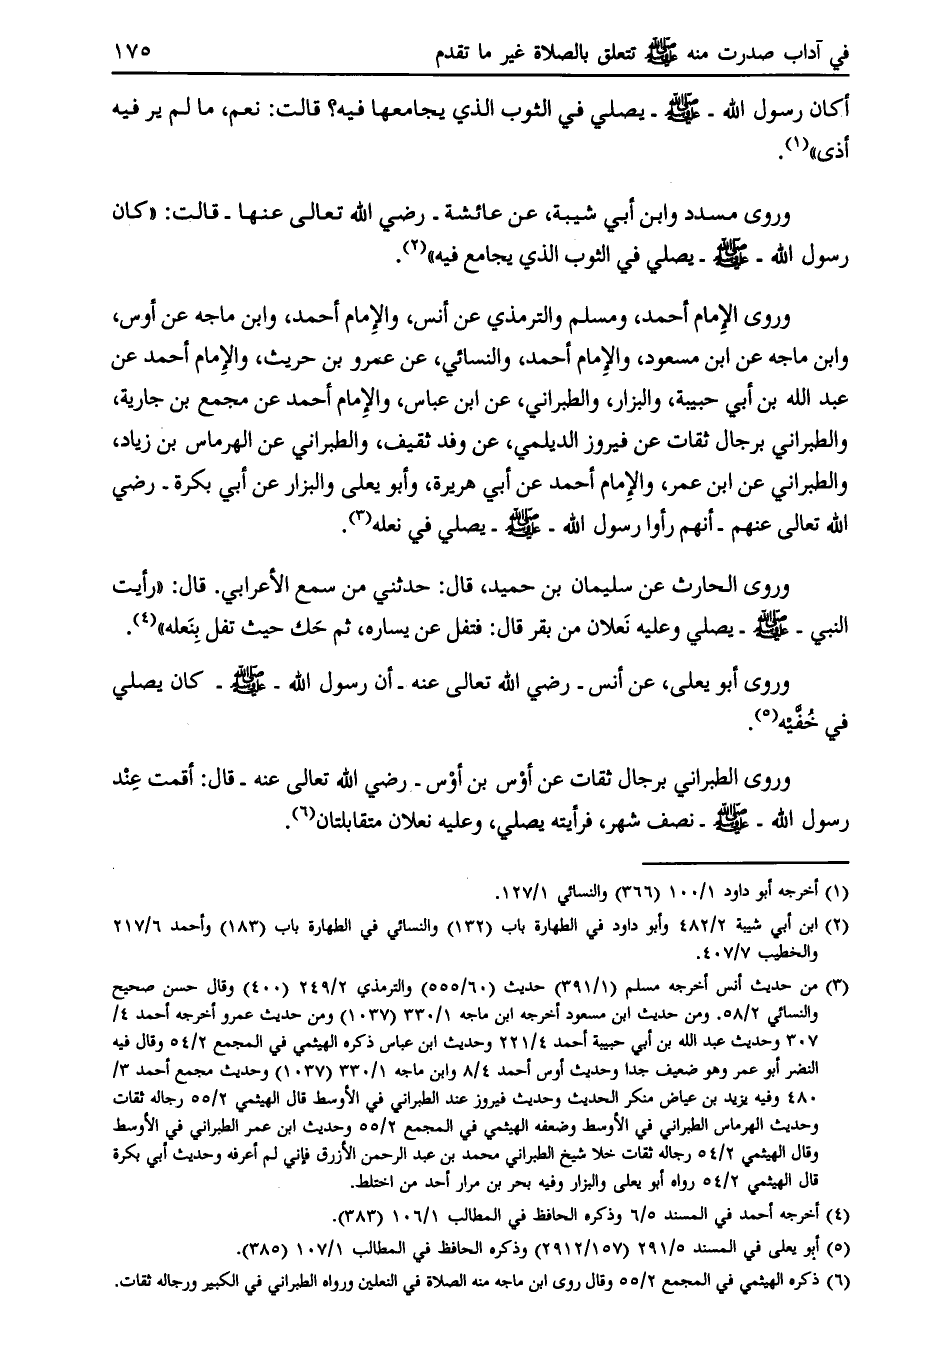 في آداب صدرت منه ﷺ تتعلق بالصلاة غير ما تقدم ١٧٥
أكان رسول الله - ﷺ - يصلي في الثوب الذي يجامعها فيه؟ قالت: نعم، ما لم ير فيه
أذى»(١).
وروى مسدد وابن أبي شيبة، عن عائشة - رضي الله تعالى عنها - قالت: «كان
رسول الله - ﷺ - يصلي في الثوب الذي يجامع فيه»(٢).
وروى الإمام أحمد، ومسلم والترمذي عن أنس، والإمام أحمد، وابن ماجه عن أوس،
وابن ماجه عن ابن مسعود، والإمام أحمد، والنسائي، عن عمرو بن حريث، والإمام أحمد عن
عبد الله بن أبي حبيبة، والبزار، والطبراني، عن ابن عباس، والإمام أحمد عن مجمع بن جارية،
والطبراني برجال ثقات عن فيروز الديلمي، عن وفد ثقيف، والطبراني عن الهرماس بن زياد،
والطبراني عن ابن عمر، والإمام أحمد عن أبي هريرة، وأبو يعلى والبزار عن أبي بكرة - رضي
الله تعالى عنهم - أنهم رأوا رسول الله - ﷺ - يصلي في نعله(٣).
وروى الحارث عن سليمان بن حميد، قال: حدثني من سمع الأعرابي. قال: «رأيت
النبي - ﷺ - يصلي وعليه نَعلان من بقر قال: فتفل عن يساره، ثم حَك حيث تفل بِنَعله»(٤).
وروى أبو يعلى، عن أنس - رضي الله تعالى عنه - أن رسول الله - ﷺ - كان يصلي
في خُفَّيْه(٥).
وروى الطبراني برجال ثقات عن أوْس بن أوْس - رضي الله تعالى عنه - قال: أقمت عِنْد
رسول الله - ﷺ - نصف شهر، فرأيته يصلي، وعليه نعلان متقابلتان(٦).
(١) أخرجه أبو داود ١٠٠/١ (٣٦٦) والنسائي ١٢٧/١.
(٢) ابن أبي شيبة ٤٨٢/٢ وأبو داود في الطهارة باب (١٣٢) والنسائي في الطهارة باب (١٨٣) وأحمد ٢١٧/٦
والخطيب ٤٠٧/٧.
(٣) من حديث أنس أخرجه مسلم (٣٩١/١) حديث (٥٥٥/٦٠) والترمذي ٢٤٩/٢ (٤٠٠) وقال حسن صحيح
والنسائي ٥٨/٢. ومن حديث ابن مسعود أخرجه ابن ماجه ٣٣٠/١ (١٠٣٧) ومن حديث عمرو أخرجه أحمد ٤/
٣٠٧ وحديث عبد الله بن أبي حبيبة أحمد ٢٢١/٤ وحديث ابن عباس ذكره الهيثمي في المجمع ٥٤/٢ وقال فيه
النضر أبو عمر وهو ضعيف جدا وحديث أوس أحمد ٨/٤ وابن ماجه ٣٣٠/١ (١٠٣٧) وحديث مجمع أحمد ٣/
٤٨٠ وفيه يزيد بن عياض منكر الحديث وحديث فيروز عند الطبراني في الأوسط قال الهيثمي ٥٥/٢ رجاله ثقات
وحديث الهرماس الطبراني في الأوسط وضعفه الهيثمي في المجمع ٥٥/٢ وحديث ابن عمر الطبراني في الأوسط
وقال الهيثمي ٥٤/٢ رجاله ثقات خلا شيخ الطبراني محمد بن عبد الرحمن الأزرق فإني لم أعرفه وحديث أبي بكرة
قال الهيثمي ٥٤/٢ رواه أبو يعلى والبزار وفيه بحر بن مرار أحد من اختلط.
(٤) أخرجه أحمد في المسند ٦/٥ وذكره الحافظ في المطالب ١٠٦/١ (٣٨٣).
(٥) أبو يعلى في المسند ٢٩١/٥ (٢٩١٢/١٥٧) وذكره الحافظ في المطالب ١٠٧/١ (٣٨٥).
(٦) ذكره الهيثمي في المجمع ٥٥/٢ وقال روى ابن ماجه منه الصلاة في النعلين ورواه الطبراني في الكبير ورجاله ثقات.